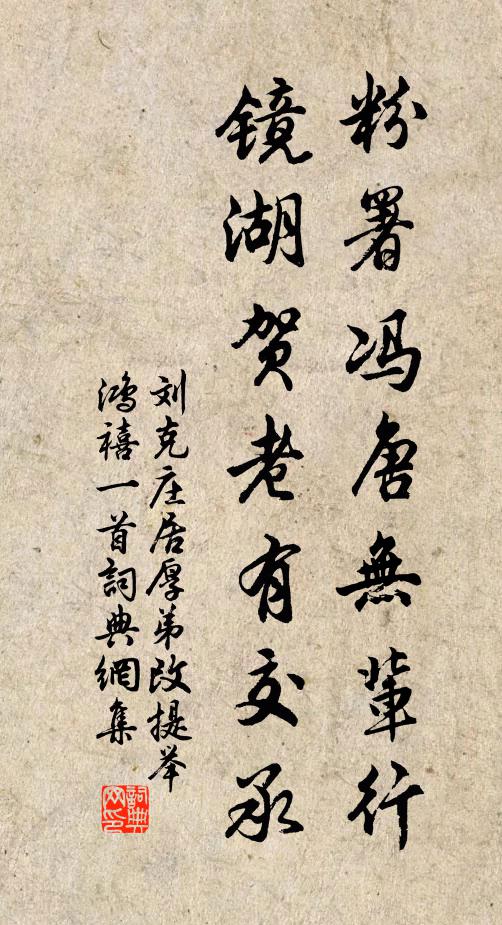 粉署冯唐無輩行
镜湖贺老有交承
刘克庄居厚弟改提举
鸿禧一首詞典網集
詞典网印